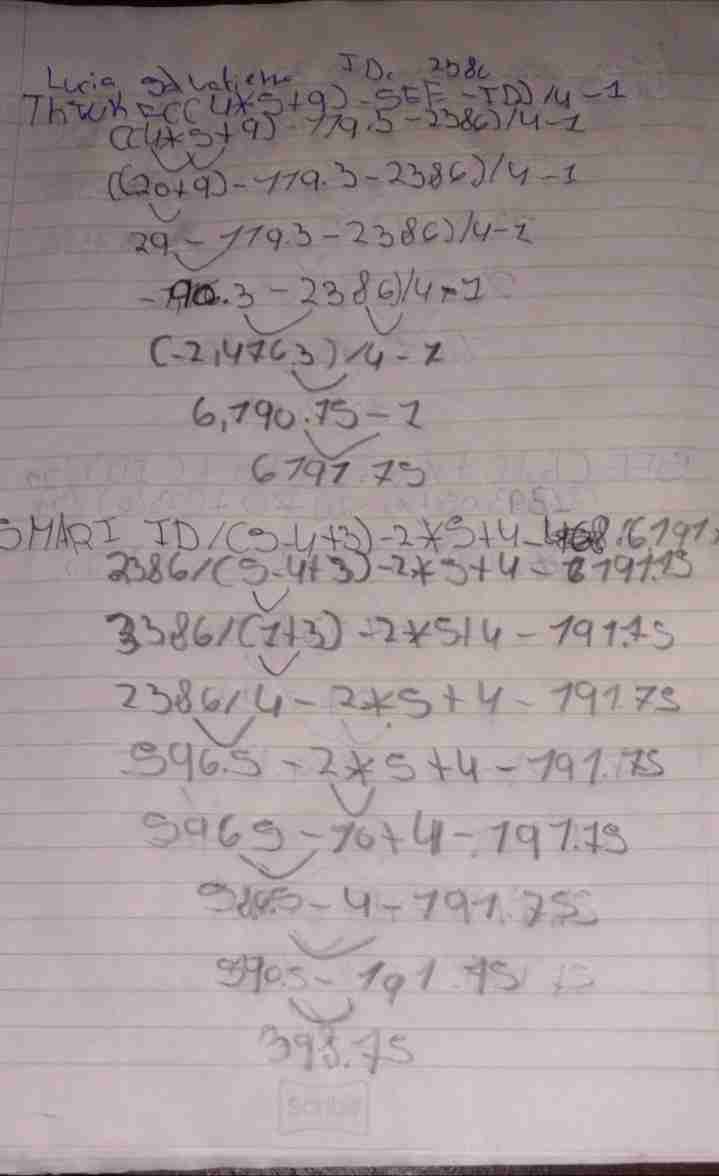 Lucia ID. 2386
Think = ((4*5+9) - SEE - ID)/4-1
((4*5+9) - 119.3 - 2386)/4-1
((20+9) - 119.3 - 2386)/4-1
29 - 119.3 - 2386)/4-1
-90.3 - 2386)/4-1
(-2,476.3)/4-1
6,190.75-1
6191.75
SMART ID/(5-4+3)-2*5+4- 6191.
2386/(5-4+3)-2*5+4-6191.75
3386/(1+3)-2*5+4-191.75
2386/4-2*5+4-191.75
596.5-2*5+4-191.75
596 5-10+4-191.75
586.5-4-191.75
590.5-191.75
393.75
Scribe